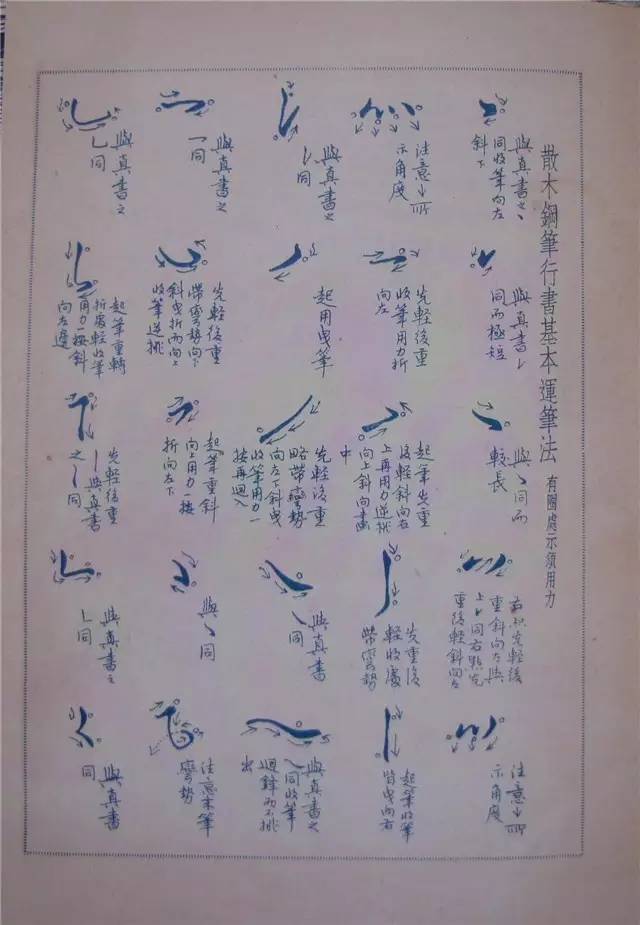 散木鋼筆行書基本運筆法 有圈處示須用力
與真書之丶
同收筆向左
斜下
與真書㇀
同而極短
與丶同而
較長
先輕後
重斜向左與
上㇀同右點先
重後輕斜向左
注意↓所
示角度
注意↓所
示角度
先輕後重
收筆用力折
向左
起筆先重
後輕斜向右
上再用力逆挑
向上斜向畫
中
先重後
輕收處
帶彎勢
起筆收筆
皆曳向右
與真書之
㇀同
起用曳筆
先輕後重
略帶彎勢
向左下斜曳
收筆用力一
按再迴入
與真書
㇏同
與真書之
㇏同收筆
迴鋒而不挑
出
與真書之
乛同
先輕後重
帶彎勢向下
斜曳折而向上
收筆逆挑
起筆重斜
向上用力一按
折向左下
與丶同
注意末筆
彎勢
與真書之
乚同
起筆重轉
折處輕收筆
再用力一按斜
向左邊
先輕後重
丨與真書
之丨同
與真書之
㇄同
與真書
同